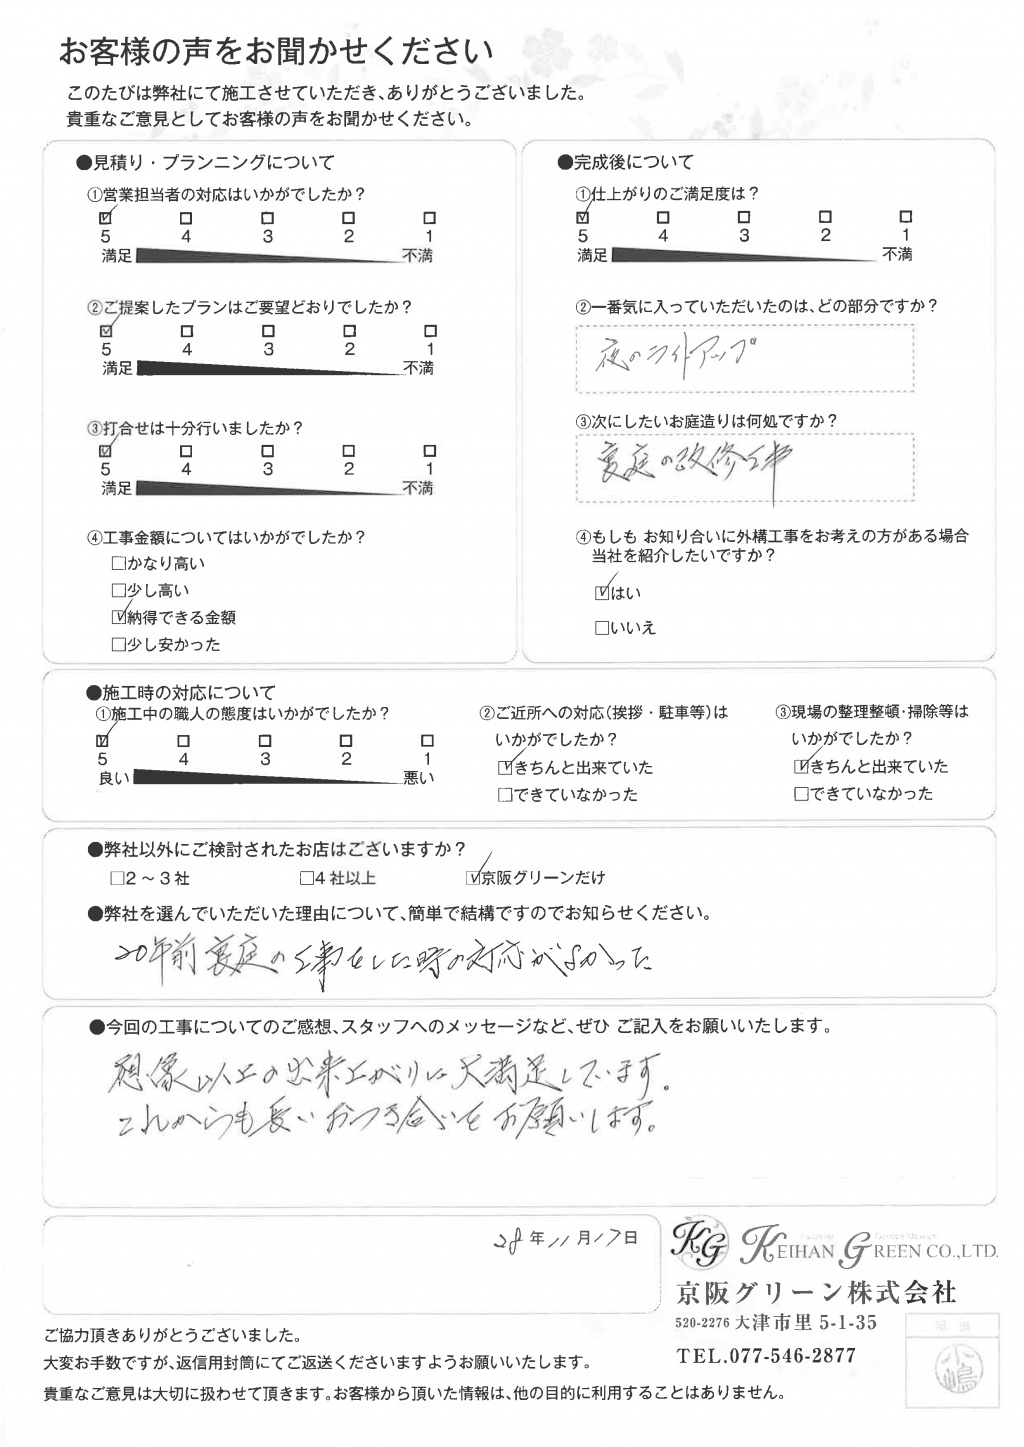 お客様の声をお聞かせください
このたびは弊社にて施工させていただき、ありがとうございました。
貴重なご意見としてお客様の声をお聞かせください。
●見積り・プランニングについて
①営業担当者の対応はいかがでしたか？
5 4 3 2 1
満足 不満
②ご提案したプランはご要望どおりでしたか？
5 4 3 2 1
満足 不満
③打合せは十分行いましたか？
5 4 3 2 1
満足 不満
④工事金額についてはいかがでしたか？
□かなり高い
□少し高い
☑納得できる金額
□少し安かった
●完成後について
①仕上がりのご満足度は？
5 4 3 2 1
満足 不満
②一番気に入っていただいたのは、どの部分ですか？
夜のライトアップ
③次にしたいお庭造りは何処ですか？
裏庭の改修工事
④もしも お知り合いに外構工事をお考えの方がある場合
当社を紹介したいですか？
☑はい
□いいえ
●施工時の対応について
①施工中の職人の態度はいかがでしたか？
5 4 3 2 1
良い 悪い
②ご近所への対応（挨拶・駐車等）は
いかがでしたか？
☑きちんと出来ていた
□できていなかった
③現場の整理整頓・掃除等は
いかがでしたか？
☑きちんと出来ていた
□できていなかった
●弊社以外にご検討されたお店はございますか？
□2～3社 □4社以上 ☑京阪グリーンだけ
●弊社を選んでいただいた理由について、簡単で結構ですのでお知らせください。
20年前裏庭の工事をした時の対応がよかった
●今回の工事についてのご感想、スタッフへのメッセージなど、ぜひ ご記入をお願いいたします。
想像以上の出来上がりに大満足しています。
これからも長いおつき合いをお願いします。
28年11月17日
KG KEIHAN GREEN CO.,LTD.
京阪グリーン株式会社
520-2276 大津市里 5-1-35
TEL.077-546-2877
小嶋
ご協力頂きありがとうございました。
大変お手数ですが、返信用封筒にてご返送くださいますようお願いいたします。
貴重なご意見は大切に扱わせて頂きます。お客様から頂いた情報は、他の目的に利用することはありません。